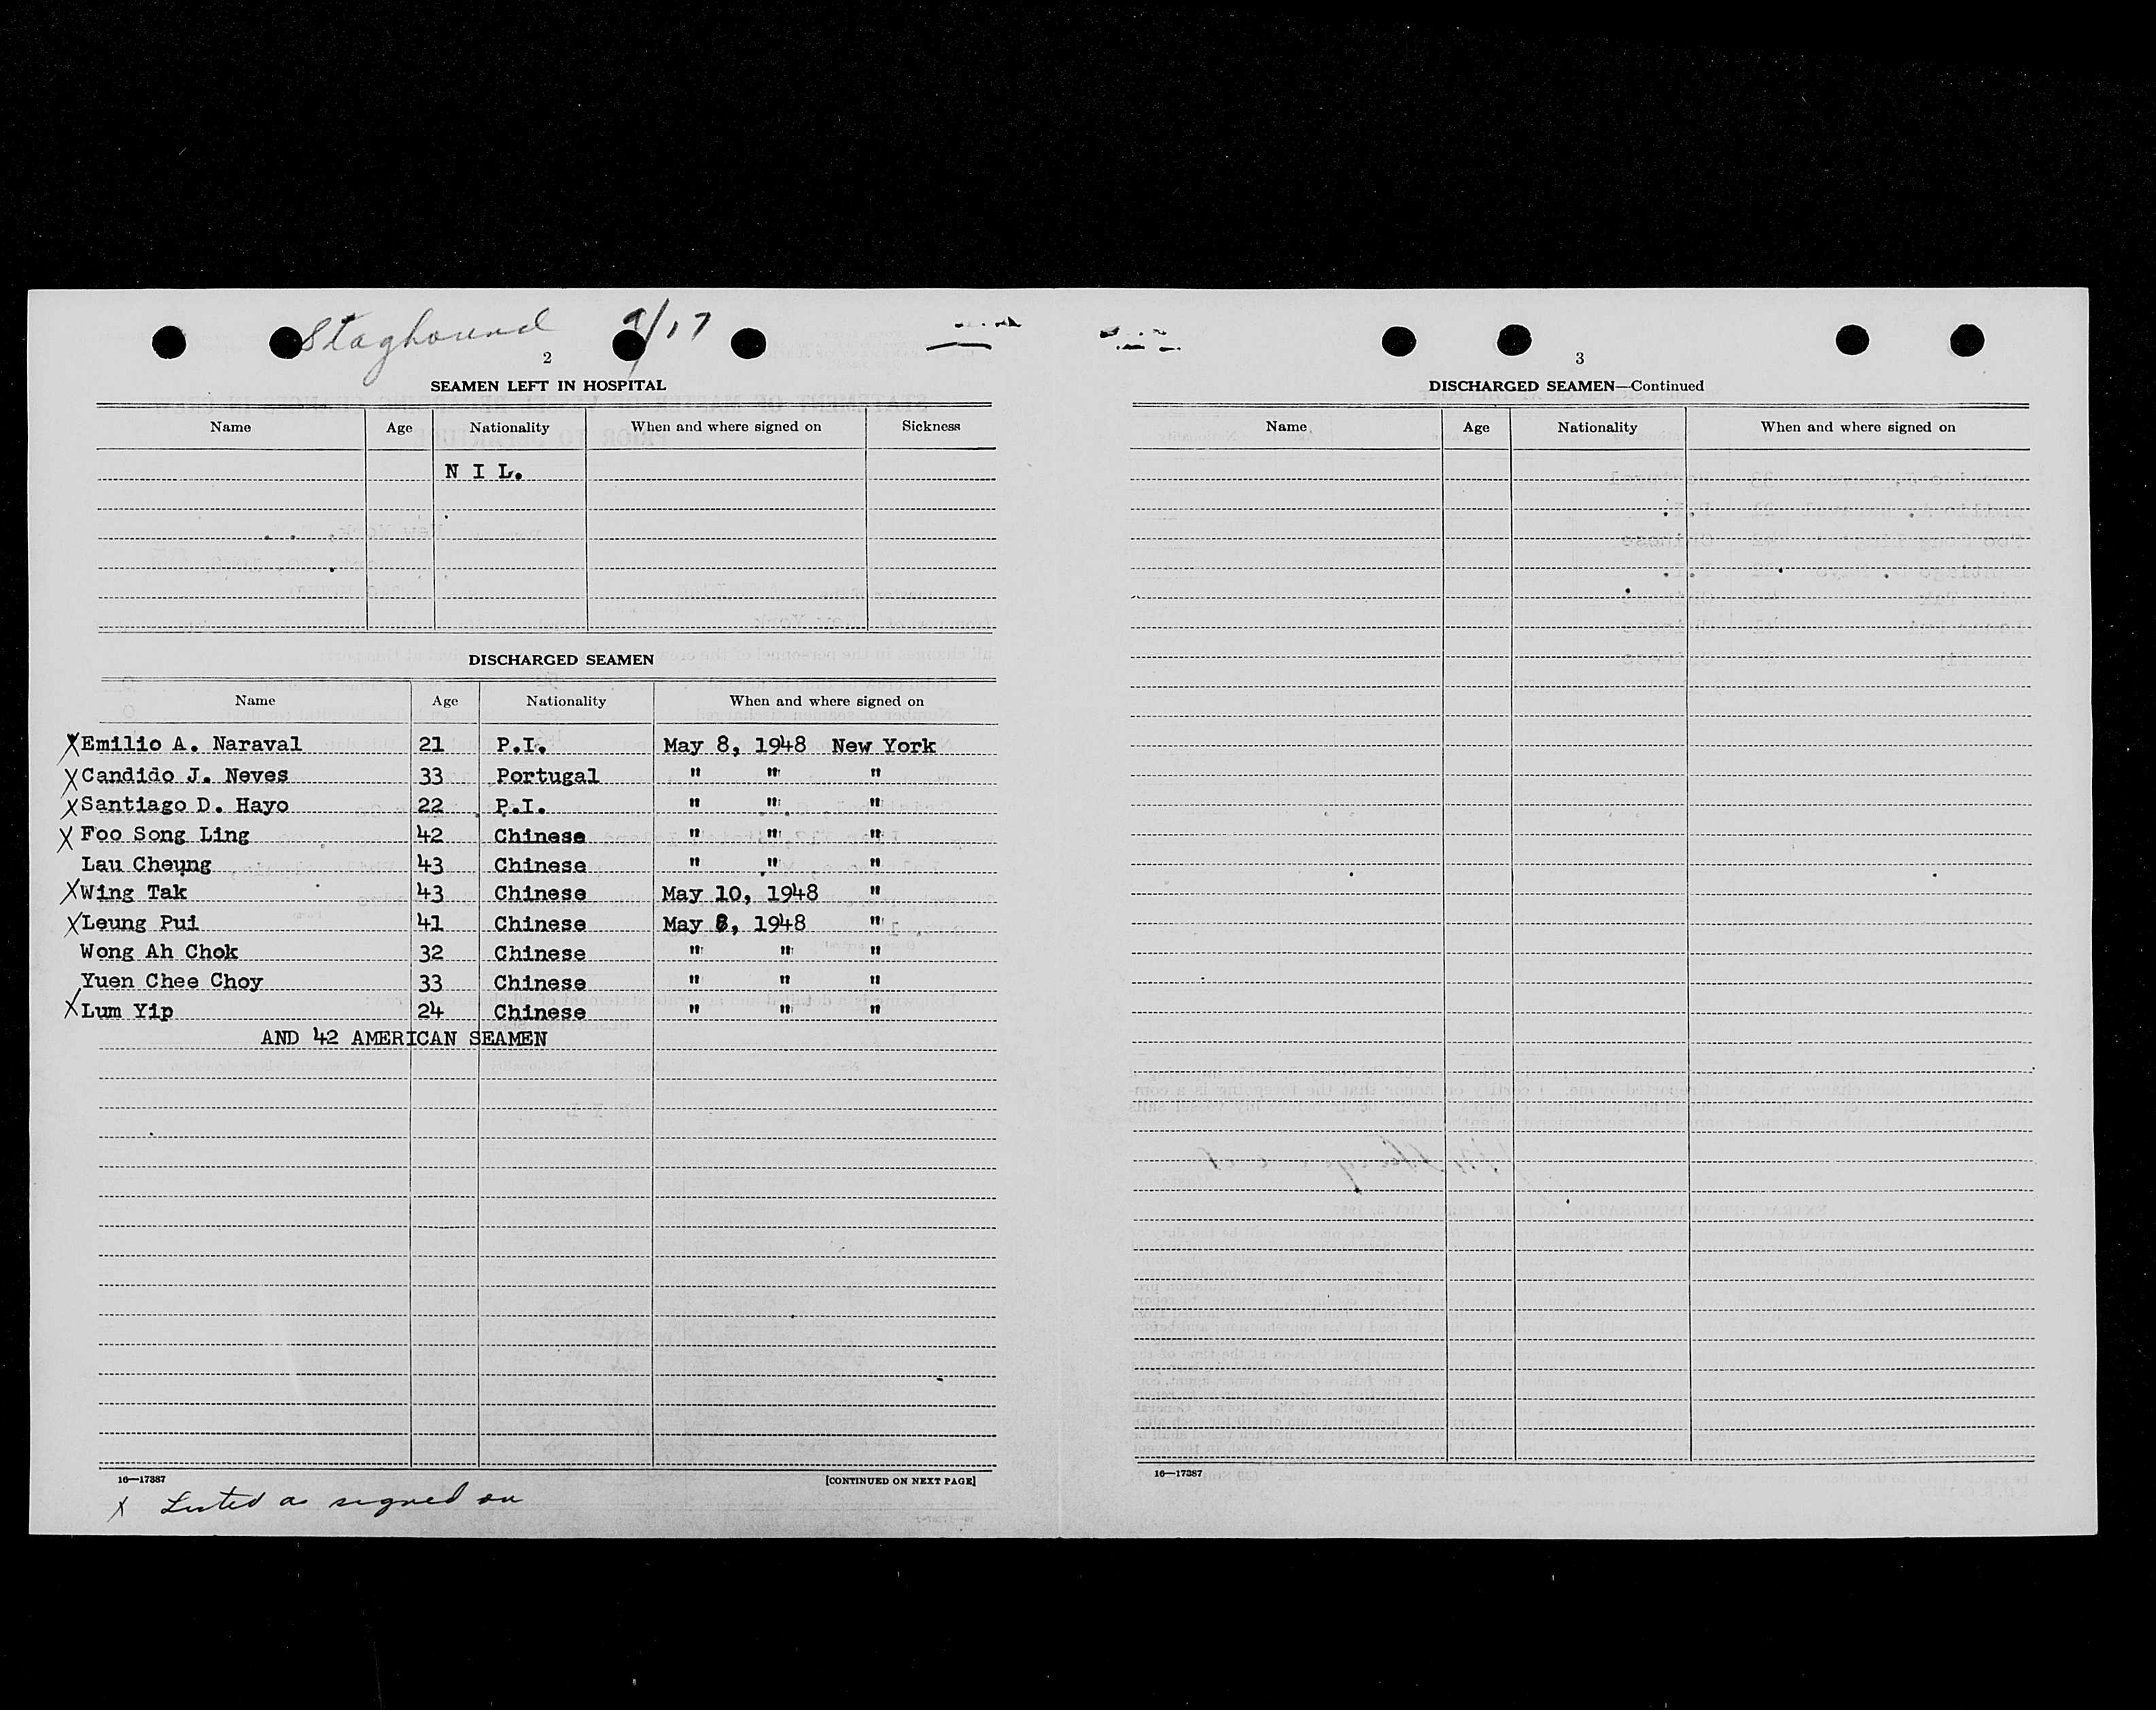 Staghound 9/17
2
SEAMEN LEFT IN HOSPITAL
Name Age Nationality When and where signed on Sickness
N I L.
DISCHARGED SEAMEN
Name Age Nationality When and where signed on
X Emilio A. Naraval 21 P.I. May 8, 1948 New York
X Candido J. Neves 33 Portugal " " "
X Santiago D. Hayo 22 P.I. " " "
X Foo Song Ling 42 Chinese " " "
Lau Cheung 43 Chinese " " "
X Wing Tak 43 Chinese May 10, 1948 "
X Leung Pui 41 Chinese May 8, 1948 "
Wong Ah Chok 32 Chinese " " "
Yuen Chee Choy 33 Chinese " " "
X Lum Yip 24 Chinese " " "
AND 42 AMERICAN SEAMEN
16—17387 [CONTINUED ON NEXT PAGE]
X Listed as signed on
3
DISCHARGED SEAMEN—Continued
Name Age Nationality When and where signed on
16—17387